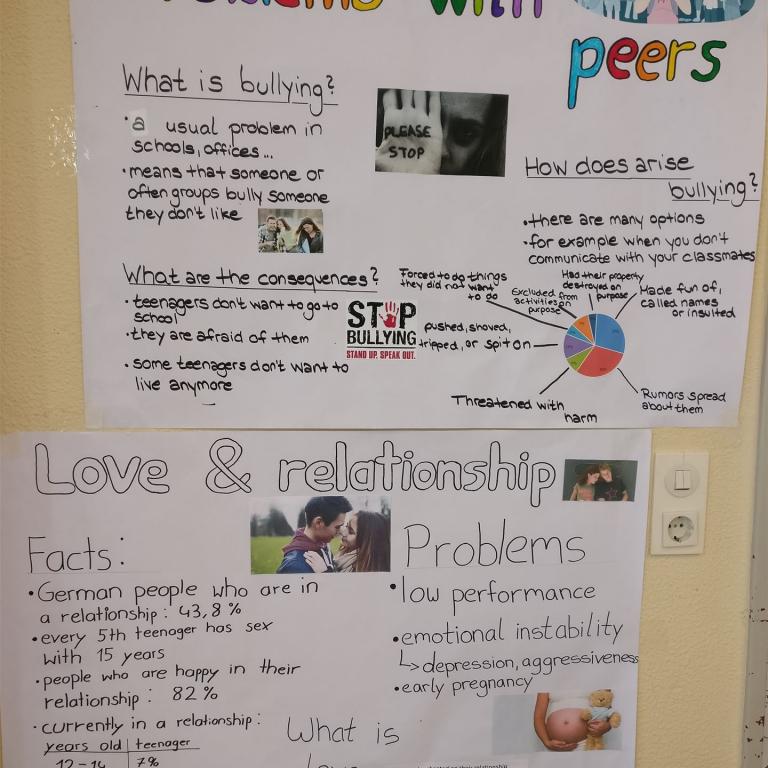 with
peers
What is bullying?
• a usual problem in
schools, offices ...
• means that someone or
often groups bully someone
they don't like
PLEASE
STOP
How does arise
bullying?
• there are many options
• for example when you don't
communicate with your classmates
What are the consequences?
• teenagers don't want to go to
school
• they are afraid of them
• some teenagers don't want to
live anymore
STOP
BULLYING
STAND UP. SPEAK OUT.
Forced to do things
they did not want
to go
Excluded from
activities on
purpose
Had their property
destroyed on
purpose
Made fun of,
called names
or insulted
pushed, shoved,
tripped, or spit on
Threatened with
harm
Rumors spread
about them
Love & relationship
Facts:
• German people who are in
a relationship: 43,8%
• every 5th teenager has sex
with 15 years
• people who are happy in their
relationship: 82%
• currently in a relationship:
years old | teenager
12-14 | 7%
Problems
• low performance
• emotional instability
↳ depression, aggressiveness
• early pregnancy
What is